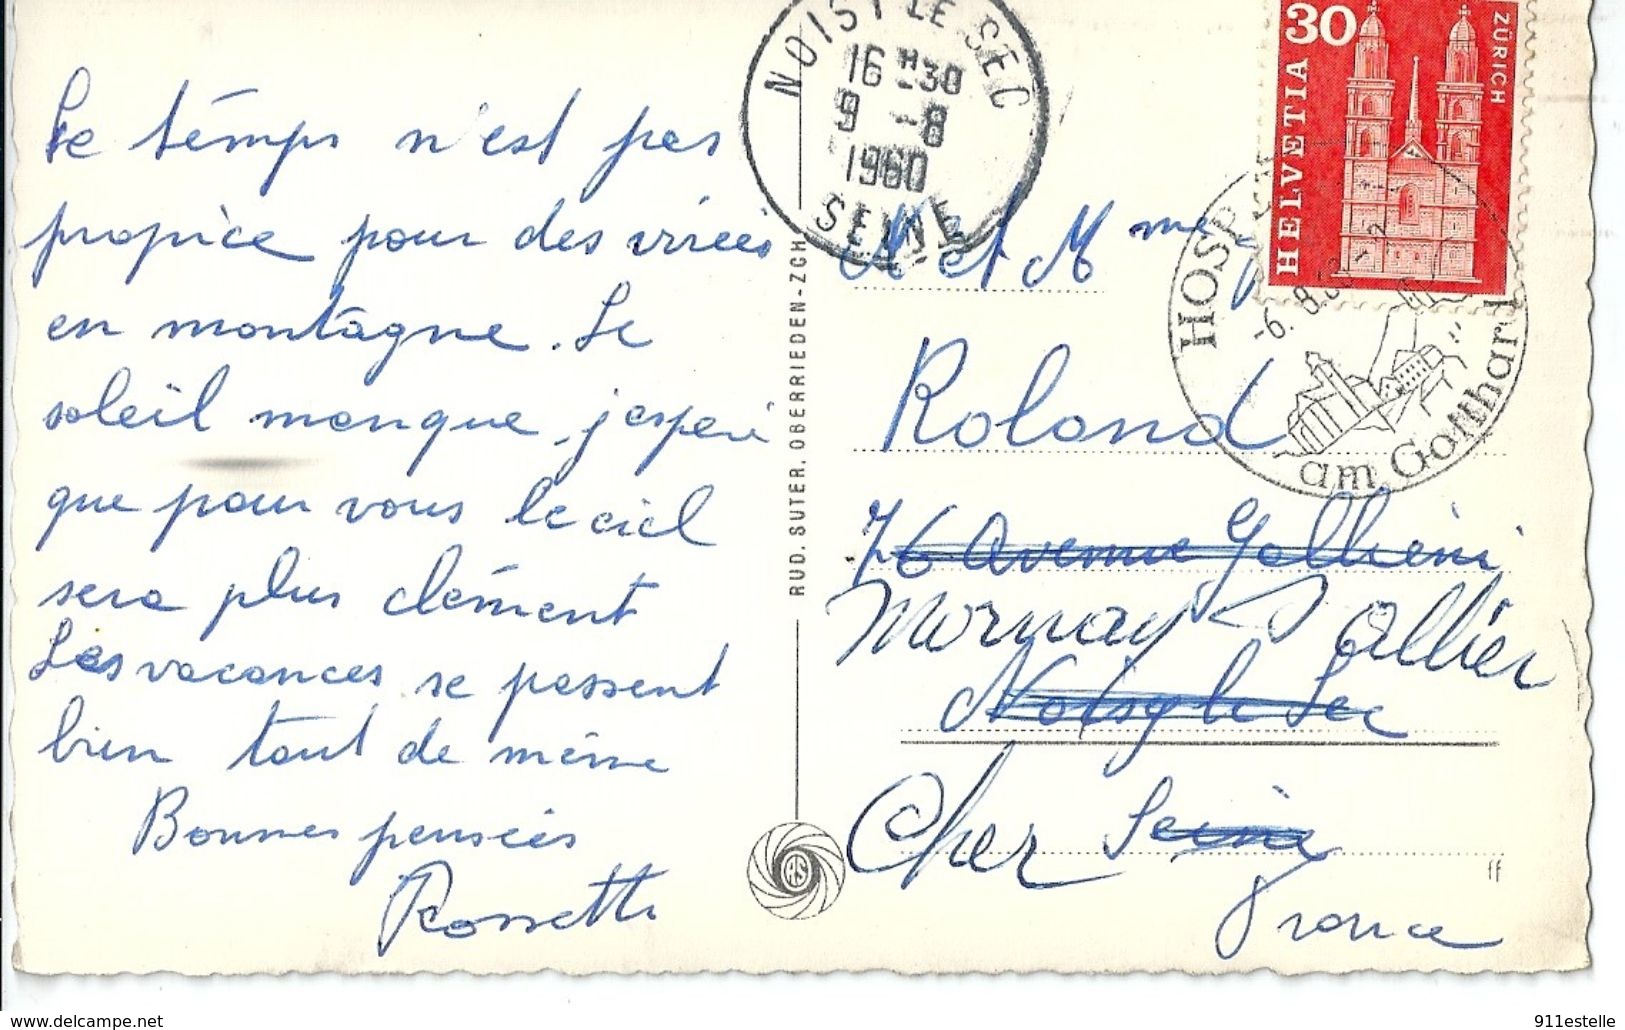 Le temps n'est pas
propice pour des virées
en montagne. Le
soleil manque, j'espère
que pour vous le ciel
sera plus clément
Les vacances se passent
bien tout de même
Bonnes pensées
Rossetti
RUD. SUTER, OBERRIEDEN-ZCH
NOISY LE SEC
16 H 30
9 -8
1960
SEINE
30
HELVETIA
ZÜRICH
HOSPE
-6. 8.
am Gotthard
M et Mme
Roland
76 Avenue Galliéni
Mornay s Allier
Noisy le Sec
Cher Seine
France
RS
ff
www.delcampe.net
911estelle